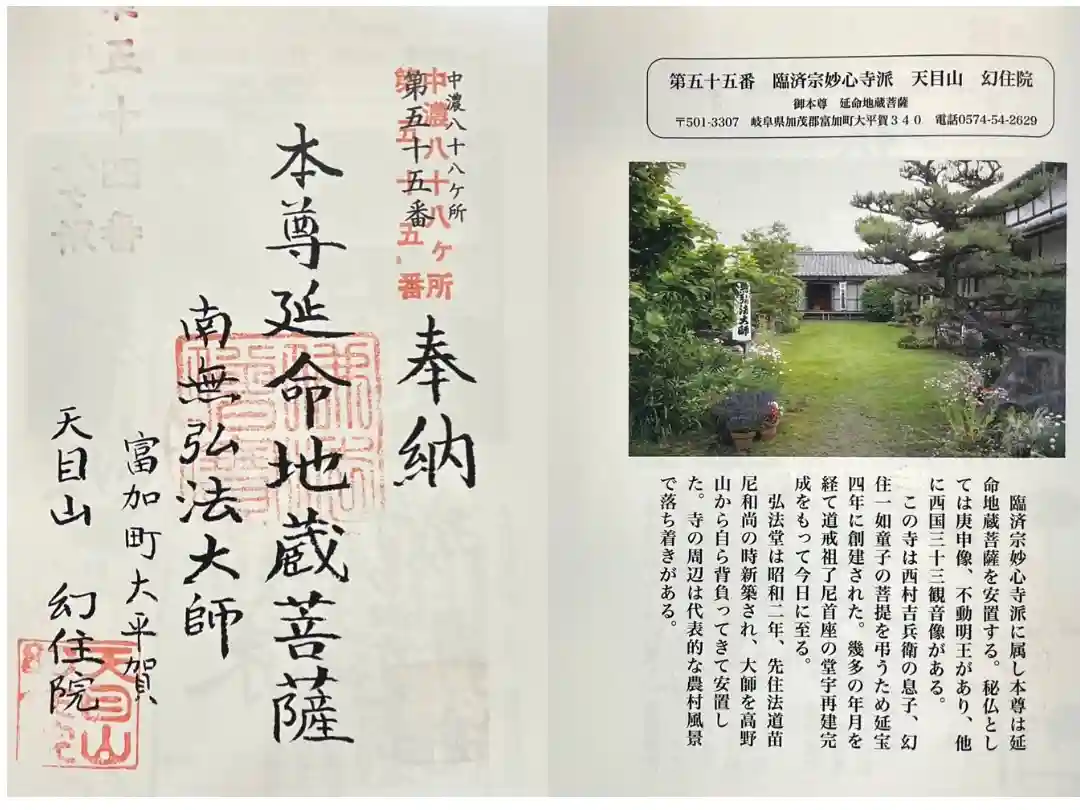 中濃八十八ケ所
第五十五番
中濃八十八ヶ所
第五十五番
奉納
本尊延命地蔵菩薩
南無弘法大師
富加町大平賀
天目山 幻住院
天目山
第五十五番 臨済宗妙心寺派 天目山 幻住院
御本尊 延命地蔵菩薩
〒501-3307 岐阜県加茂郡富加町大平賀340 電話0574-54-2629
弘法大師
臨済宗妙心寺派に属し本尊は延
命地蔵菩薩を安置する。秘仏とし
ては庚申像、不動明王があり、他
に西国三十三観音像がある。
この寺は西村吉兵衛の息子、幻
住一如童子の菩提を弔うため延宝
四年に創建された。幾多の年月を
経て道戒祖了尼首座の堂宇再建完
成をもって今日に至る。
弘法堂は昭和二年、先住法道苗
尼和尚の時新築され、大師を高野
山から自ら背負ってきて安置し
た。寺の周辺は代表的な農村風景
で落ち着きがある。